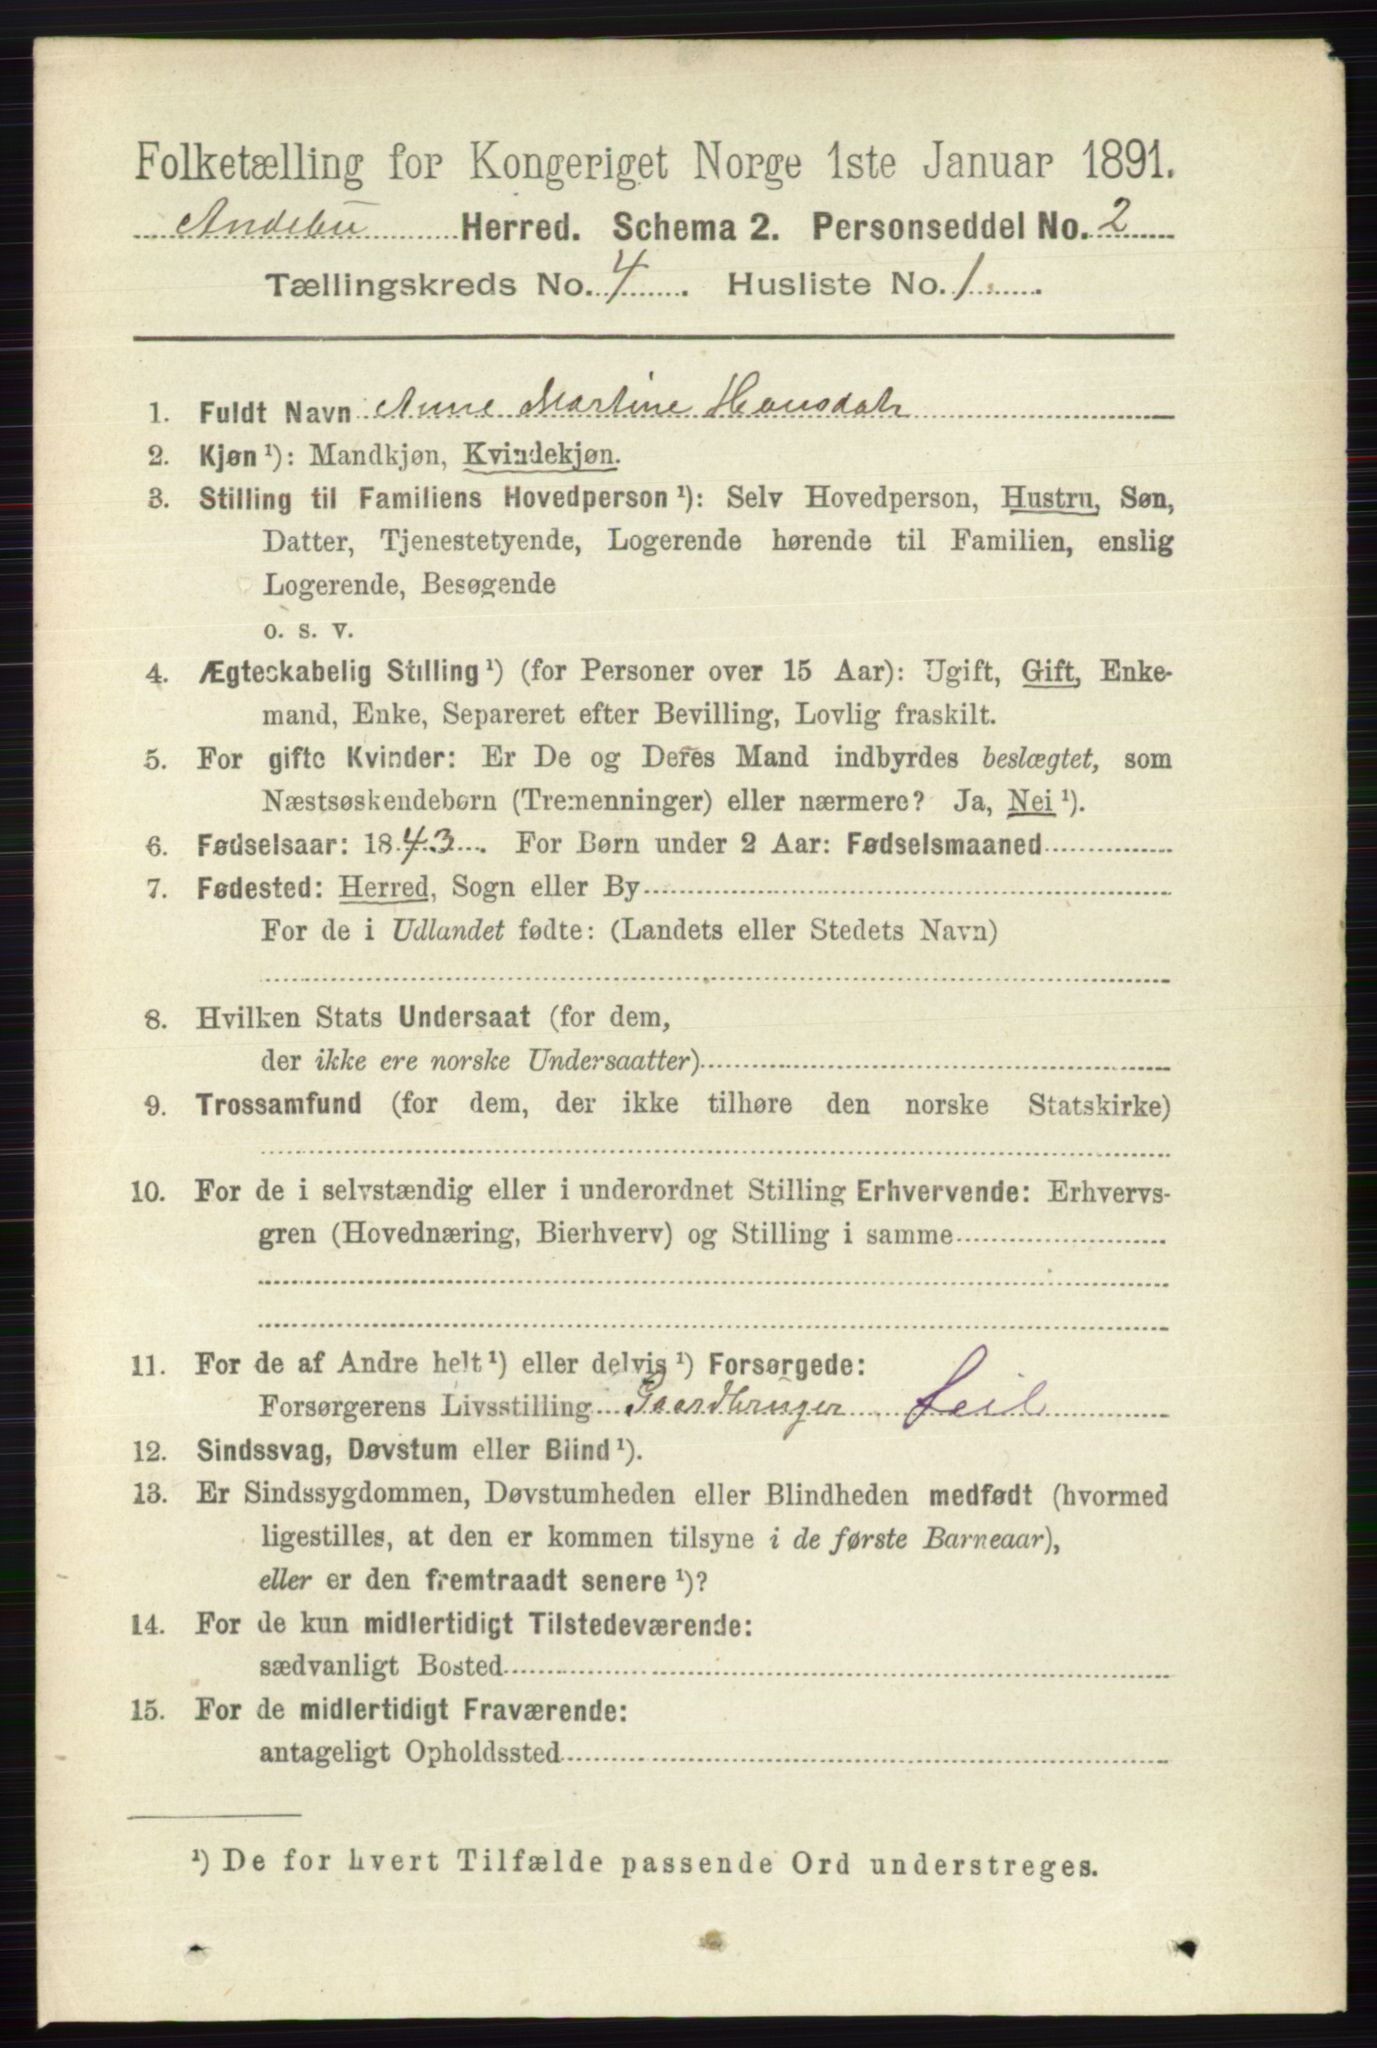 Folketælling for Kongeriget Norge 1ste Januar 1891.
Andebu Herred. Schema 2. Personseddel No. 2
Tællingskreds No. 4. Husliste No. 1.
1. Fuldt Navn Anne Martine Hansdatr
2. Kjøn¹): Mandkjøn, Kvindekjøn.
3. Stilling til Familiens Hovedperson¹): Selv Hovedperson, Hustru, Søn,
Datter, Tjenestetyende, Logerende hørende til Familien, enslig
Logerende, Besøgende
o. s. v.
4. Ægteskabelig Stilling¹) (for Personer over 15 Aar): Ugift, Gift, Enke-
mand, Enke, Separeret efter Bevilling, Lovlig fraskilt.
5. For gifte Kvinder: Er De og Deres Mand indbyrdes beslægtet, som
Næstsøskendebørn (Tremenninger) eller nærmere? Ja, Nei¹).
6. Fødselsaar: 1843. For Børn under 2 Aar: Fødselsmaaned
7. Fødested: Herred, Sogn eller By
For de i Udlandet fødte: (Landets eller Stedets Navn)
8. Hvilken Stats Undersaat (for dem,
der ikke ere norske Undersaatter)
9. Trossamfund (for dem, der ikke tilhøre den norske Statskirke)
10. For de i selvstændig eller i underordnet Stilling Erhvervende: Erhvervs-
gren (Hovednæring, Bierhverv) og Stilling i samme
11. For de af Andre helt¹) eller delvis¹) Forsørgede:
Forsørgerens Livsstilling Gaardbruger Leil
12. Sindssvag, Døvstum eller Blind¹).
13. Er Sindssygdommen, Døvstumheden eller Blindheden medfødt (hvormed
ligestilles, at den er kommen tilsyne i de første Barneaar),
eller er den fremtraadt senere¹)?
14. For de kun midlertidigt Tilstedeværende:
sædvanligt Bosted
15. For de midlertidigt Fraværende:
antageligt Opholdssted
¹) De for hvert Tilfælde passende Ord understreges.